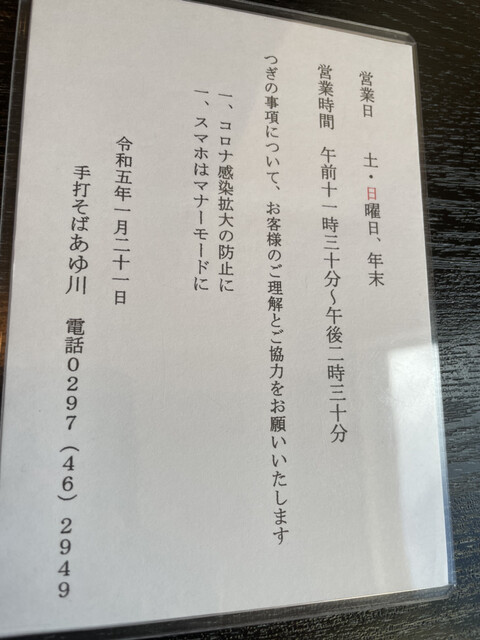 営業日　土・日曜日、年末
営業時間　午前十一時三十分～午後二時三十分
つぎの事項について、お客様のご理解とご協力をお願いいたします
一、コロナ感染拡大の防止に
一、スマホはマナーモードに
令和五年一月二十一日
手打そばあゆ川　電話０２９７（４６）２９４９